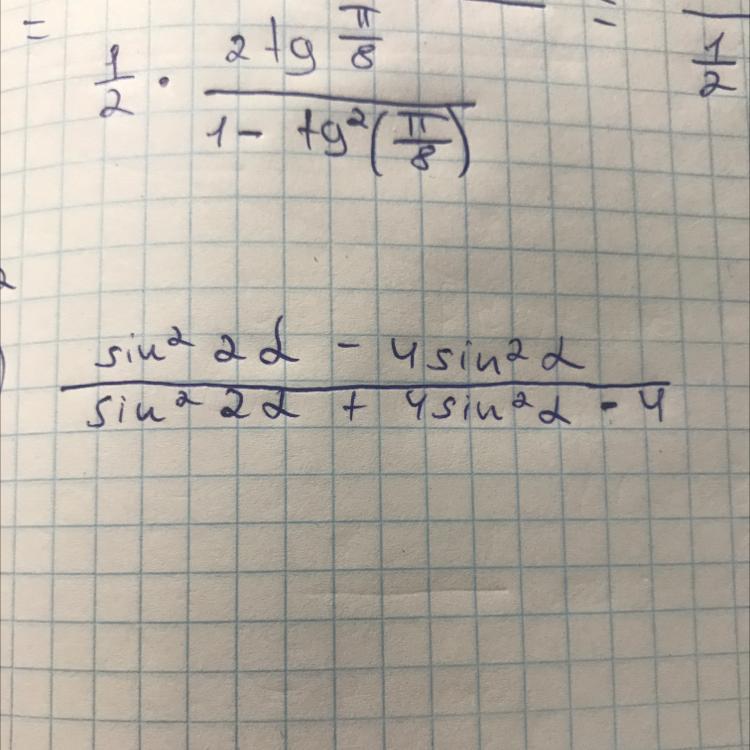 = 1/2 · (2 tg π/8) / (1 - tg²(π/8)) = / 1/2
sin² 2α - 4 sin² α
sin² 2α + 4 sin² α - 4